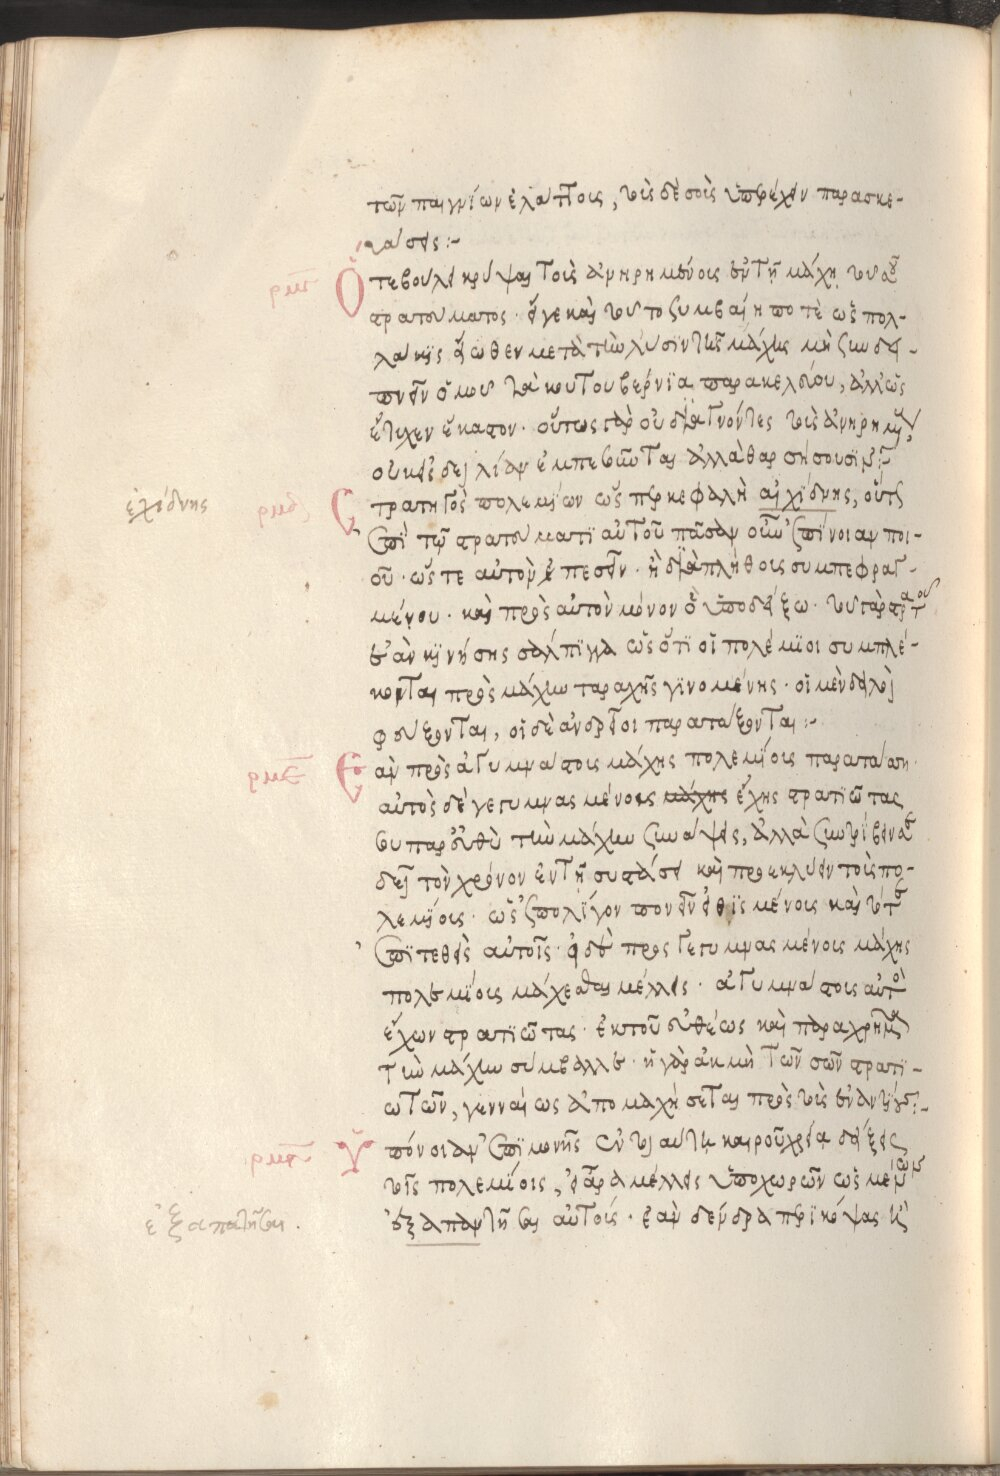 τῶν παιγνίων ἐλαττοις, τοῖς δὲ σοῖς ὑπερέχειν παρασκε-
υάσεις :-
ρμγ Ὅτε βούλει κρύψαι τοὺς ἀνηρημένους ἐν τῇ μάχῃ τοῦ σοῦ
στρατεύματος. εἴγε καὶ τοῦτο ξυμβαίη ποτὲ ὡς πολ-
λάκις ἕωθεν μετὰ τὴν λύσιν τῆς μάχης μὴ ξυνδει-
πνεῖν ὁμοῦ τὰ κουτουβέρνια παρακελεύου, ἀλλ' ὡς
ἔτυχεν ἕκαστον. οὕτως γὰρ οὐ διαγνόντες τοὺς ἀνηρημένους
οὐκ εἰς δειλίαν ἐμπεσοῦνται ἀλλὰ θαρσήσουσι μᾶλλον
ἐχίδνης
ρμδ Στρατηγὸς πολεμίων ὡσπερ κεφαλὴ αἰχίδνης, οὕτως
ἐπὶ τῷ στρατεύματι αὐτοῦ πᾶσαν οὖν ἐπίνοιαν ποι-
οῦ. ὥστε αὐτὸν πεσεῖν. ἢ διὰ πλήθους συμπεφραγ-
μένου. καὶ πρὸς αὐτὸν μόνον ὃ ὑποδείξω. τοῦ γὰρ στρατοῦ
ἐὰν κινήσῃς σάλπιγγα ὡς ὅτι οἱ πολέμιοι συμπλέ-
κονται πρὸς μάχην ταραχῆς γινομένης. οἱ μὲν δειλοὶ
φεύξονται, οἱ δὲ ἀνδρεῖοι παρατάξονται :-
ρμε Ἐὰν πρὸς ἀγυμνάστοις μάχης πολεμίοις παρατάσσῃ.
αὐτὸς δὲ γεγυμνασμένους μάχης ἔχῃς στρατιώτας
οὐ παρευθὺ τὴν μάχην ξυνάψεις, ἀλλὰ ξυντρίβειν σε
δεῖ τὸν χρόνον ἐν τῇ συστάσει καὶ προεκλύειν τοῖς πο-
λεμίοις. ὡς ἐπ' ὀλίγον πονεῖν εἰθισμένοις καὶ οὕτως
ἐπιτεθεὶς αὐτοῖς. εἰ δὲ πρὸς γεγυμνασμένοις μάχης
πολεμίοις μάχεσθαι μέλλεις. ἀγυμνάστοις αὐτὸς
ἔχων στρατιώτας. ἐκ τοῦ εὐθέως καὶ παραχρῆμα
τὴν μάχην σύμβαλλε. ἡ γὰρ ἀκμὴ τῶν σῶν στρατι-
ωτῶν, γενναίως ἀπομαχήσεται πρὸς τοὺς ἐναντίους :-
ρμς Ὑπόνοιαν ἐπιμονῆς ἐν ταύτῃ καιροῦ χρεία δείξεις
τοῖς πολεμίοις, εἰ ἄρα μέλλεις ὑποχωρῶν ὡς μένων
ἐξαπατῆσαι.
ἐξαπαντῆσαι αὐτούς. ἐὰν δένδρα περικόψας καὶ